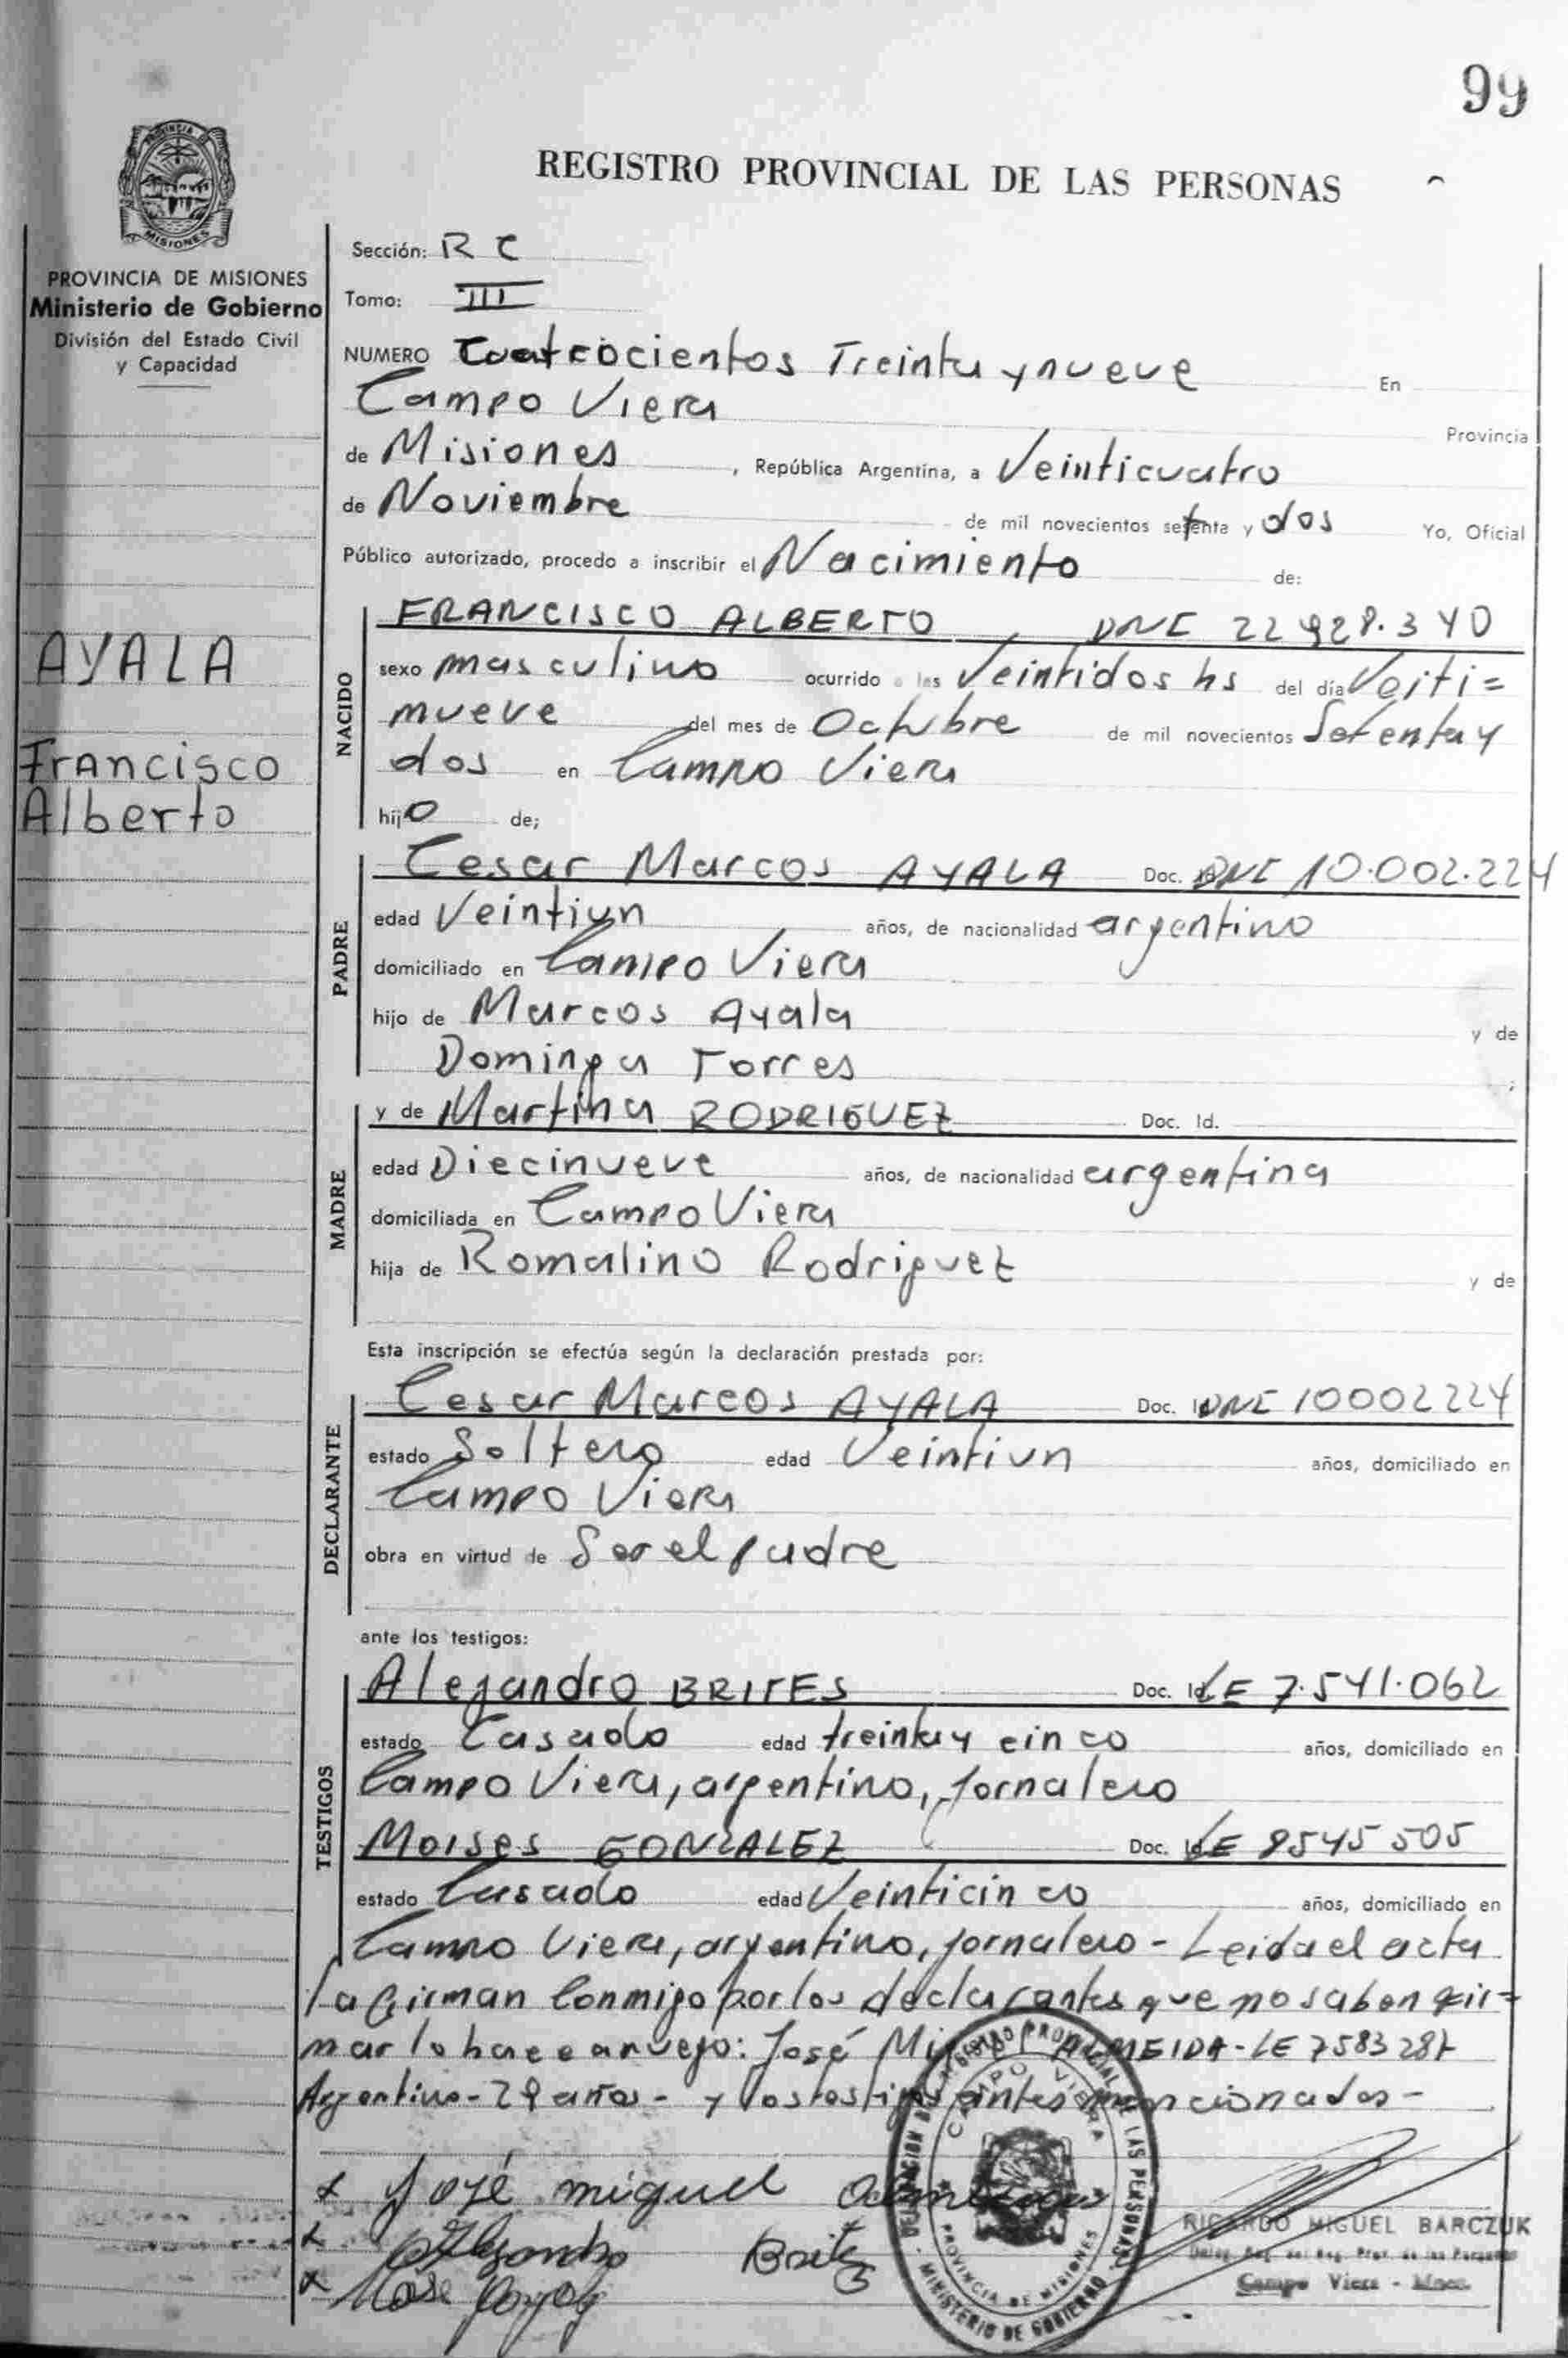 99
REGISTRO PROVINCIAL DE LAS PERSONAS
MISIONES
PROVINCIA DE MISIONES
Ministerio de Gobierno
División del Estado Civil
y Capacidad
AYALA
Francisco
Alberto
Sección: R C
Tomo: III
NUMERO Cuatrocientos Treinta y nueve En
Campo Viera Provincia
de Misiones , República Argentina, a Veinticuatro
de Noviembre de mil novecientos setenta y dos Yo, Oficial
Público autorizado, procedo a inscribir el Nacimiento de:
NACIDO
FRANCISCO ALBERTO , DNI 22.928.340
sexo masculino ocurrido a las Veintidos hs del día Veiti=
nueve del mes de Octubre de mil novecientos Setenta y
dos en Campo Viera
hijo de;
PADRE
Cesar Marcos AYALA Doc. Id. DNI 10.002.224
edad Veintiun años, de nacionalidad argentino
domiciliado en Campo Viera
hijo de Marcos Ayala y de
Dominga Torres ;
MADRE
y de Martina RODRIGUEZ Doc. Id.
edad Diecinueve años, de nacionalidad argentina
domiciliada en Campo Viera
hija de Romalino Rodriguez y de
Esta inscripción se efectúa según la declaración prestada por:
DECLARANTE
Cesar Marcos AYALA Doc. Id DNI 10002224
estado Soltero edad Veintiun años, domiciliado en
Campo Viera
obra en virtud de Ser el padre
ante los testigos:
TESTIGOS
Alejandro BRITES Doc. Id LE 7.541.062
estado Casado edad treinta y cinco años, domiciliado en
Campo Viera, argentino, jornalero
Moises GONZALEZ Doc. Id LE 8545505
estado Casado edad Veinticinco años, domiciliado en
Campo Viera, argentino, jornalero - Leida el acta
la firman conmigo por los declarantes que no saben fir=
mar lo hace a ruego: José Miguel ALMEIDA - LE 7583287
Argentino - 29 años - y los testigos antes mencionados -
x José miguel
x Alejandro Brites
x
DELEGACION DEL REGISTRO PROVINCIAL DE LAS PERSONAS
CAMPO VIERA
PROVINCIA DE MISIONES
MINISTERIO DE GOBIERNO
RICARDO MIGUEL BARCZUK
Campo Viera - Mnes.